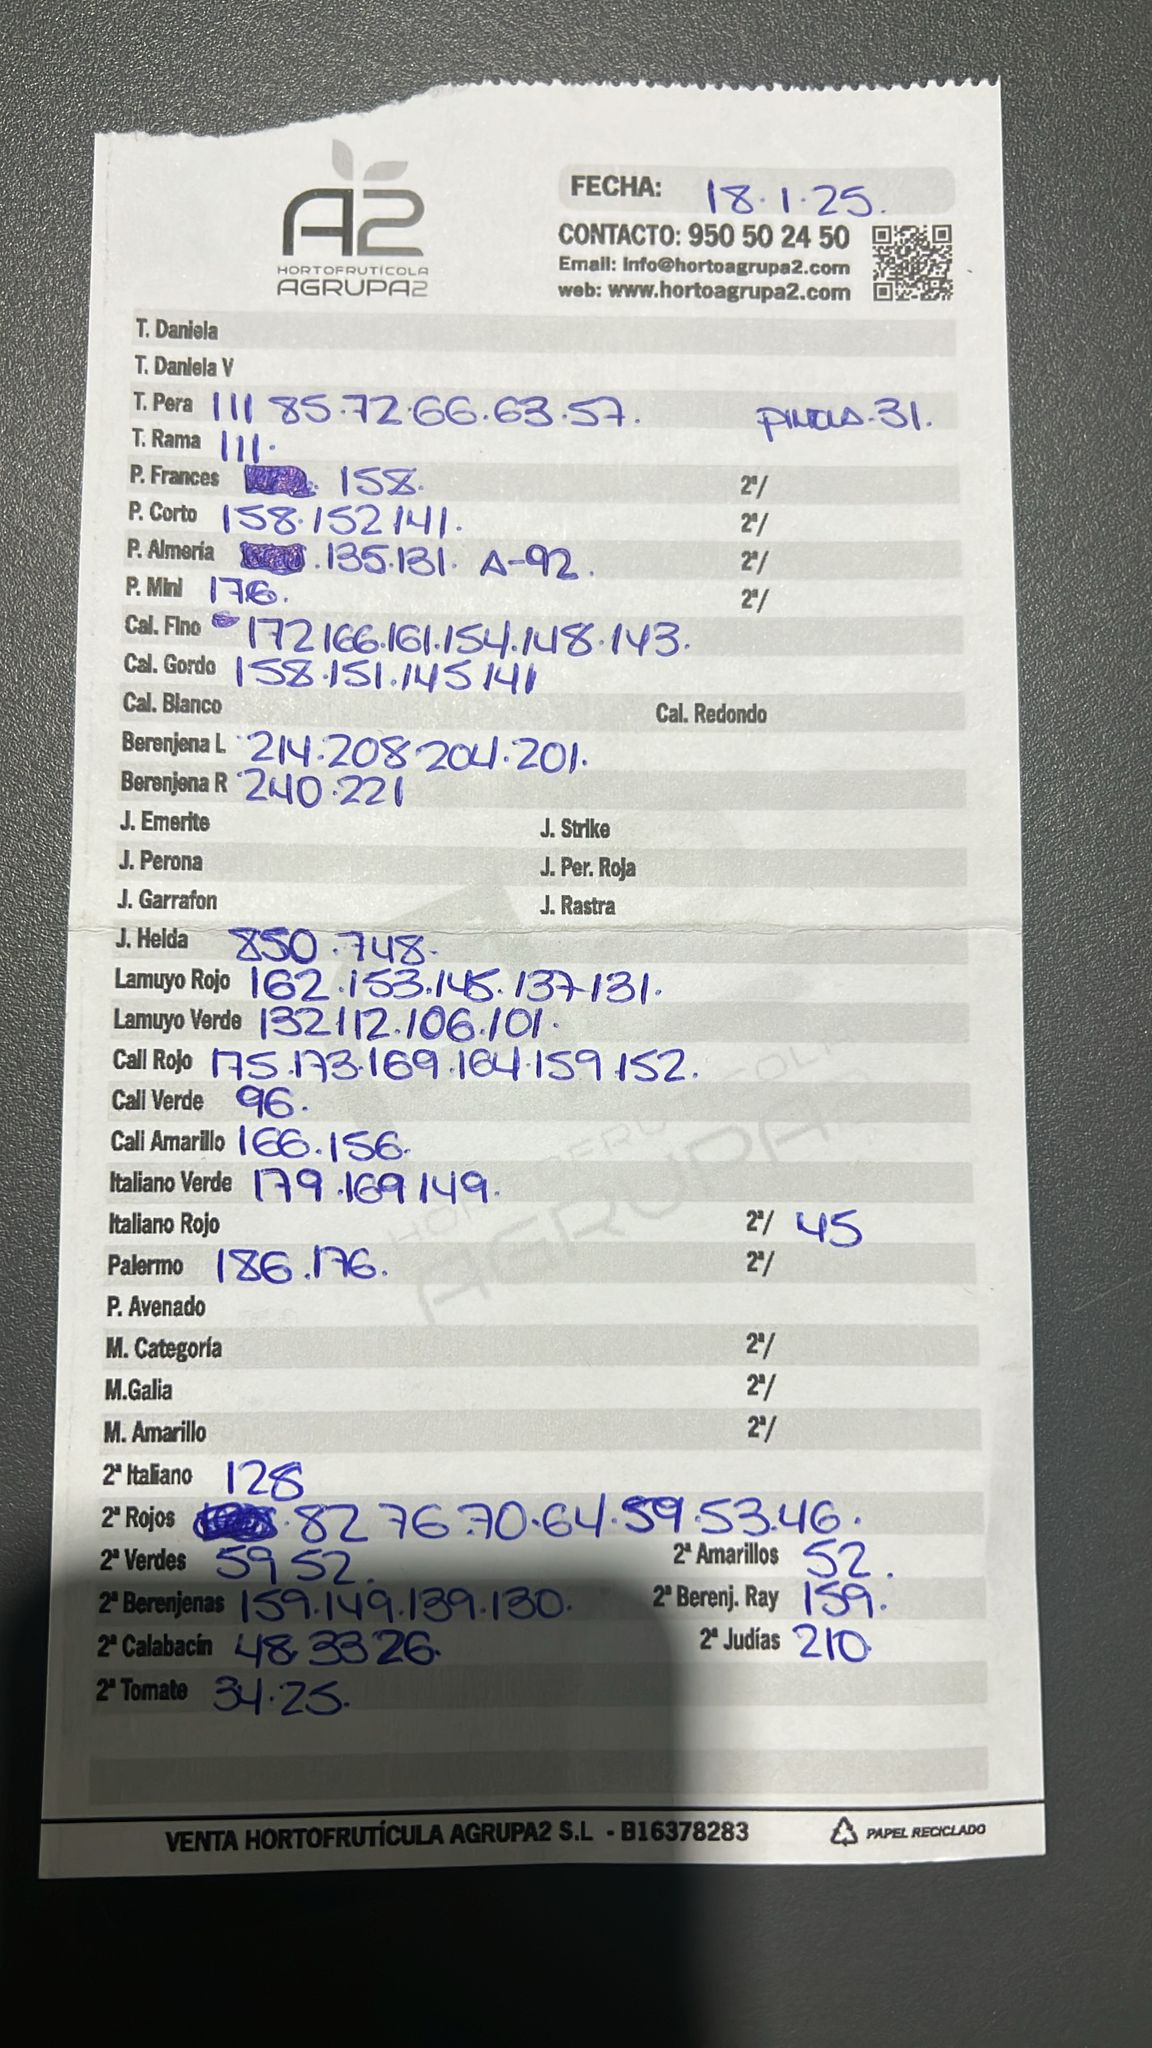 A2
HORTOFRUTÍCOLA
AGRUPA2
FECHA: 18.1.25.
CONTACTO: 950 50 24 50
Email: info@hortoagrupa2.com
web: www.hortoagrupa2.com
T. Daniela
T. Daniela V
T. Pera 111 85.72.66.63.57. 31.
T. Rama 111.
P. Frances 158. 2ª/
P. Corto 158.152 141. 2ª/
P. Almería .135.131. A-92. 2ª/
P. Mini 176. 2ª/
Cal. Fino 172 166.161.154.148.143.
Cal. Gordo 158.151.145 141
Cal. Blanco Cal. Redondo
Berenjena L 214.208 204.201.
Berenjena R 240.221
J. Emerite J. Strike
J. Perona J. Per. Roja
J. Garrafon J. Rastra
J. Helda 850.748.
Lamuyo Rojo 162.153.145.137-131.
Lamuyo Verde 132 112.106.101.
Cali Rojo 175.173.169.164.159 152.
Cali Verde 96.
Cali Amarillo 166.156.
Italiano Verde 179.169 149.
Italiano Rojo 2ª/ 45
Palermo 186.176. 2ª/
P. Avenado
M. Categoría 2ª/
M.Galia 2ª/
M. Amarillo 2ª/
2ª Italiano 128
2ª Rojos .82 76.70.64.59.53.46.
2ª Verdes 59 52. 2ª Amarillos 52.
2ª Berenjenas 159.149.139.130. 2ª Berenj. Ray 159.
2ª Calabacín 48.33 26. 2ª Judías 210.
2ª Tomate 34.25.
VENTA HORTOFRUTÍCULA AGRUPA2 S.L - B16378283 PAPEL RECICLADO